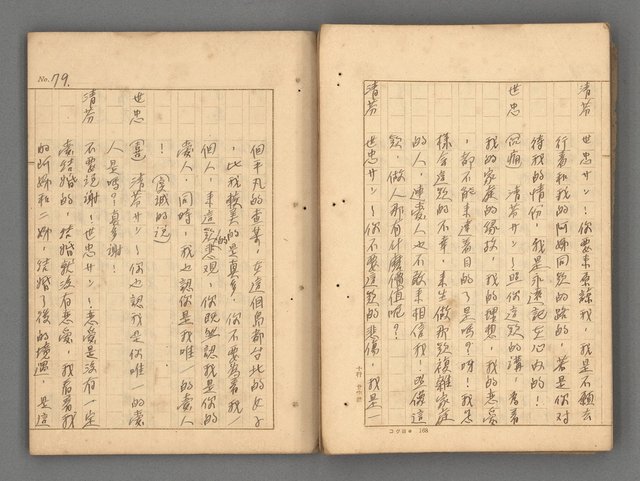 清芳　世忠サン！你要來原諒我，我是不願去
行著和我的阿姊同款的路的，若是你对
待我的情份，我是永遠記在心內的！
世忠　沉痛　清芳サン！照你這款的講，為着
我的家庭的緣故，我的理想，我的恋爱
，都不能來達着目的了是嗎？啊！我怎
樣会這款的不幸，來生做那款複雜家庭
的人，連愛人也不敢來相信我，照像這
款，做人那有什麼價值呢？
清芳　世忠サン！你不要這款的悲傷，我是一
コクヨ 168
No. 79.
個平凡的查某，在這個島都台北的女子
，比我較美的是真多，你不要為着我一
個人，來這款的悲观，你既然認我是你的
愛人，同時，我也認你是我唯一的愛人
！　　　真誠的說
世忠　喜　清芳サン！你也認我是你唯一的愛
人是嗎？真多謝！
清芳　不要說謝！世忠サン！恋爱是沒有一定
愛結婚的，結婚就沒有恋爱，我看着我
的阿姊和二姊，結婚了後的境遇，是這